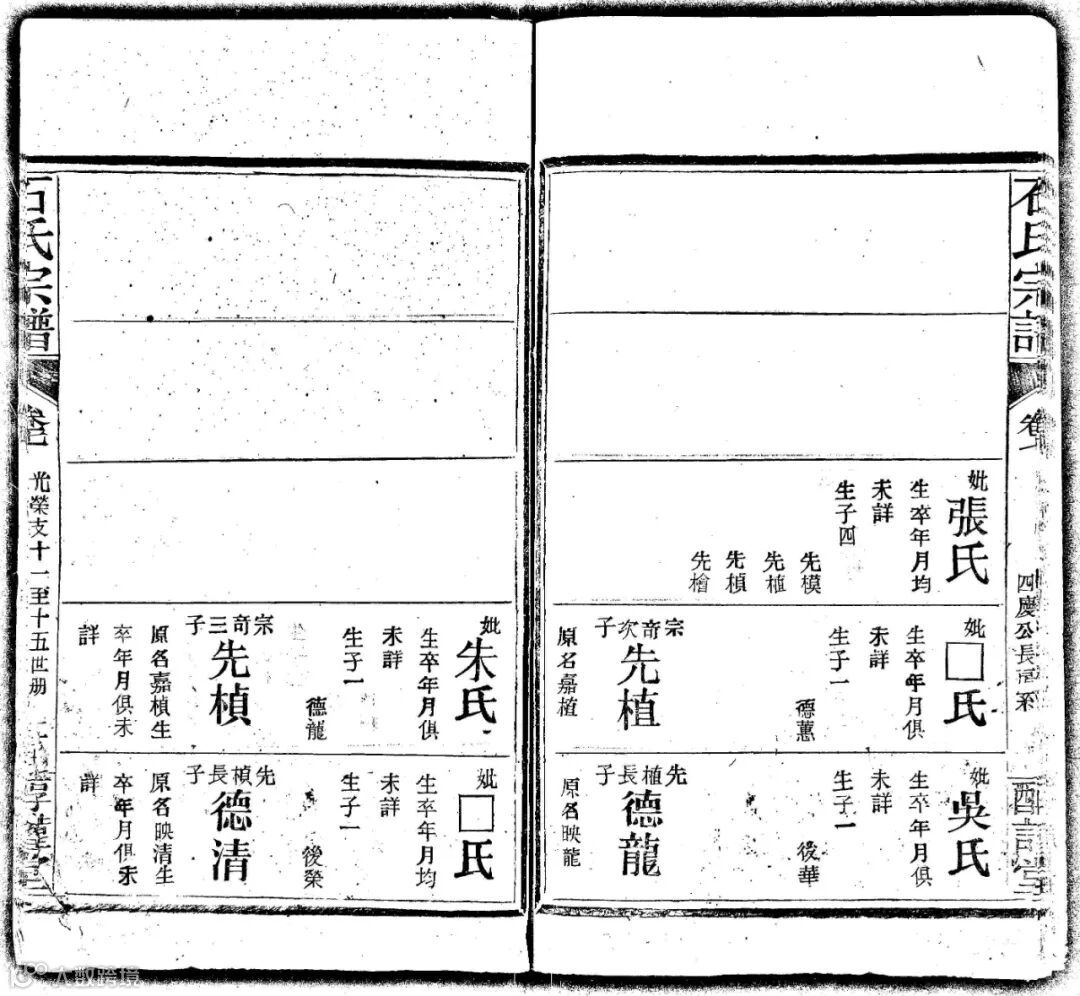 石氏宗譜
卷
四慶公長房系
妣張氏
生卒年月均
未詳
生子四
先模
先植
先楨
先檜
妣□氏
生卒年月俱
未詳
生子一
德蕙
宗奇次子
先植
原名嘉植
妣吳氏
生卒年月俱
未詳
生子一
後華
先植長子
德龍
原名映龍
妣朱氏
生卒年月俱
未詳
生子一
德龍
宗奇三子
先楨
原名嘉楨生
卒年月俱未
詳
妣□氏
生卒年月均
未詳
生子一
後榮
先楨長子
德清
原名映清生
卒年月俱未
詳
石氏宗譜
卷
光榮支十一至十五世册
大数跨境